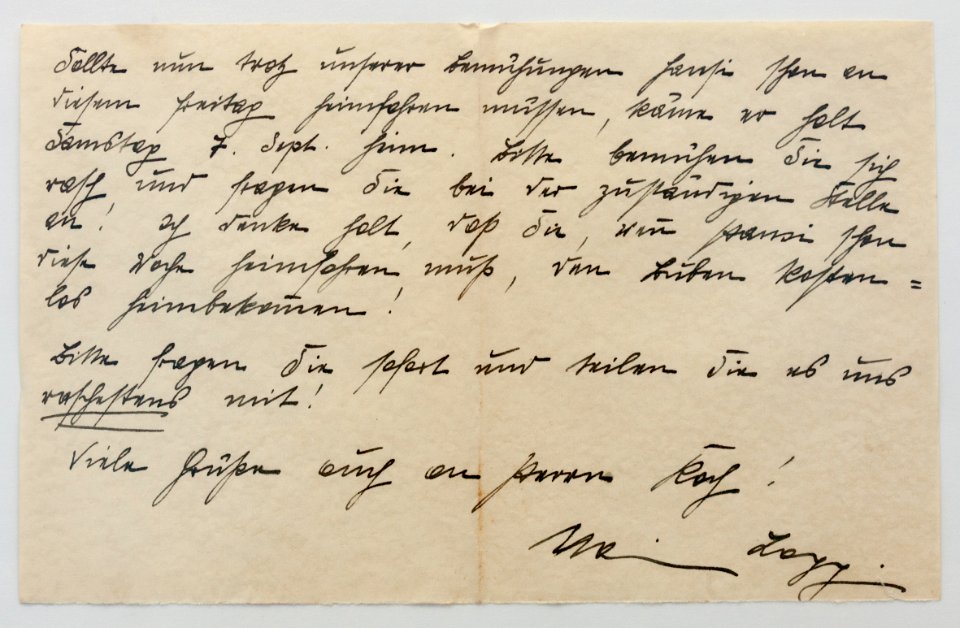 Sollte nun trotz unserer Bemühungen Hansi schon an
diesem Freitag heimfahren müssen, käme er halt
Samstag 7. Sept. heim. Bitte bemühen Sie sich
rasch und fragen Sie bei der zuständigen Stelle
an! Ich denke halt, daß Sie, wenn Hansi schon
diese Woche heimfahren muß, den Buben kosten=
los heimbekommen!
Bitte fragen Sie sofort und teilen Sie es uns
raschestens mit!
Viele Grüße auch an Herrn Koch!